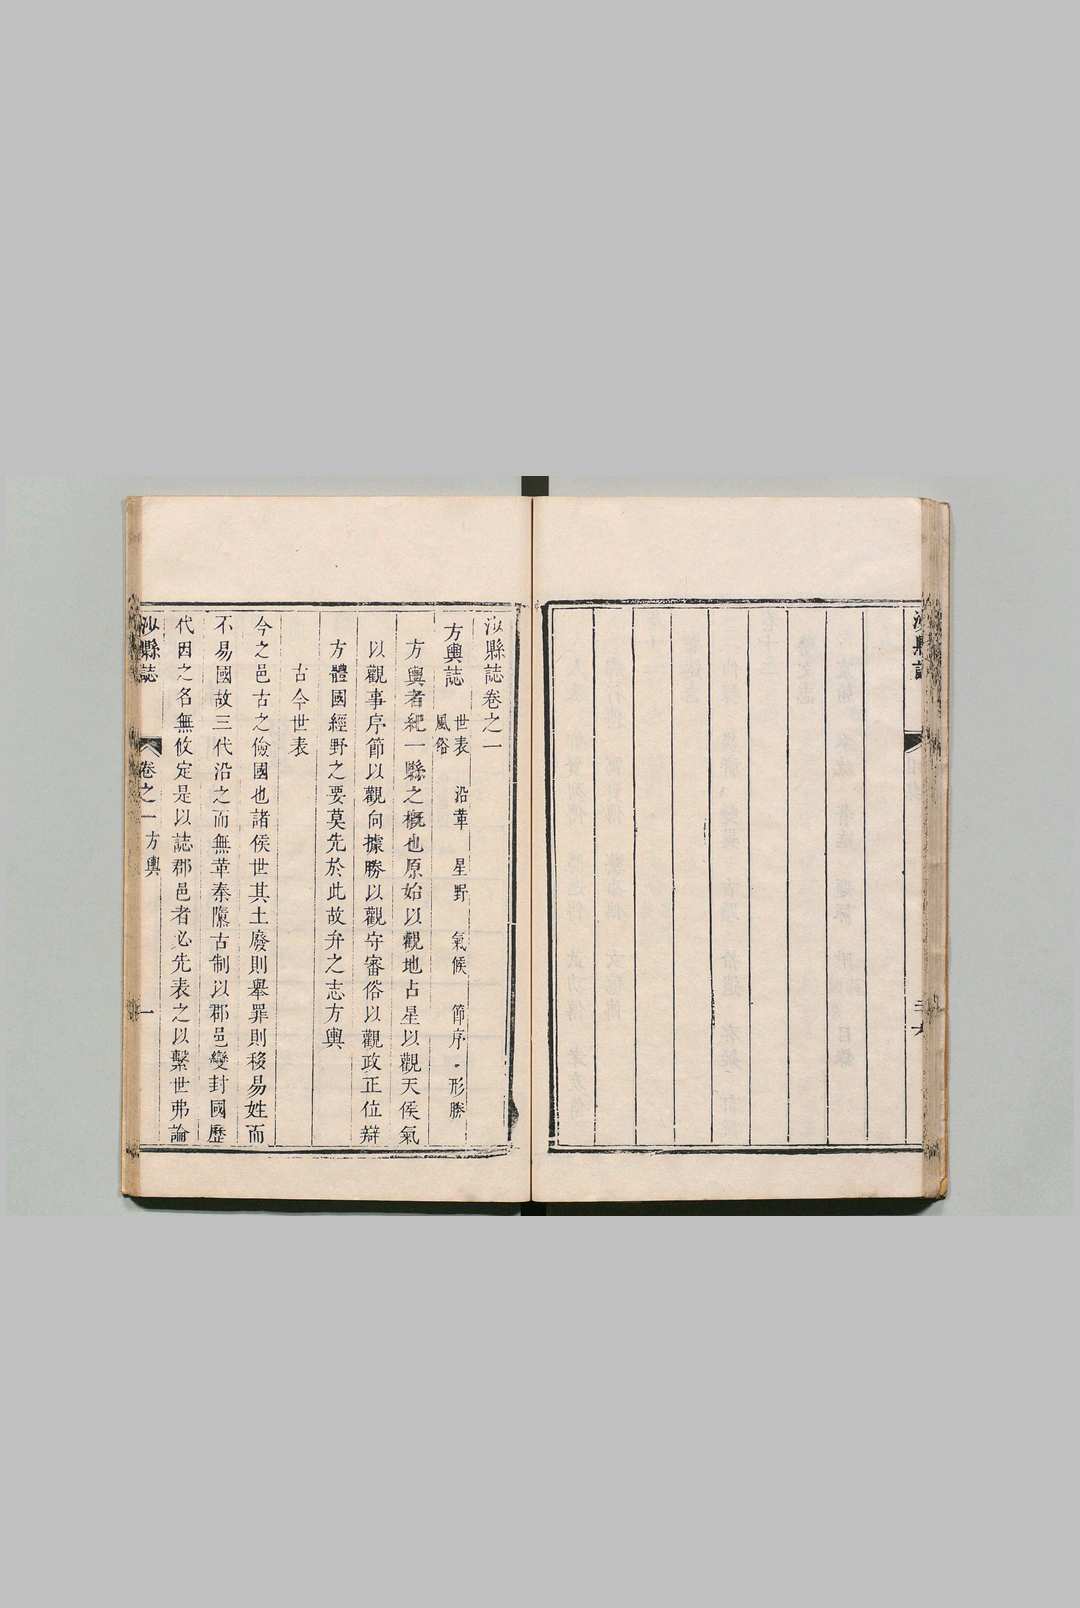 沙縣誌
沙縣誌卷之一
方輿誌 世表 沿革 星野 氣候 節序 形勝
風俗
方輿者紀一縣之槪也原始以觀地占星以觀天侯氣
以觀事序節以觀向據勝以觀守審俗以觀政正位辯
方體國經野之要莫先於此故弁之志方輿
古今世表
今之邑古之儉國也諸侯世其土廢則舉罪則移易姓而
不易國故三代沿之而無革秦隳古制以郡邑變封國歷
代因之名無攸定是以誌郡邑者必先表之以繫世弗論
沙縣誌 卷之一 方輿 一